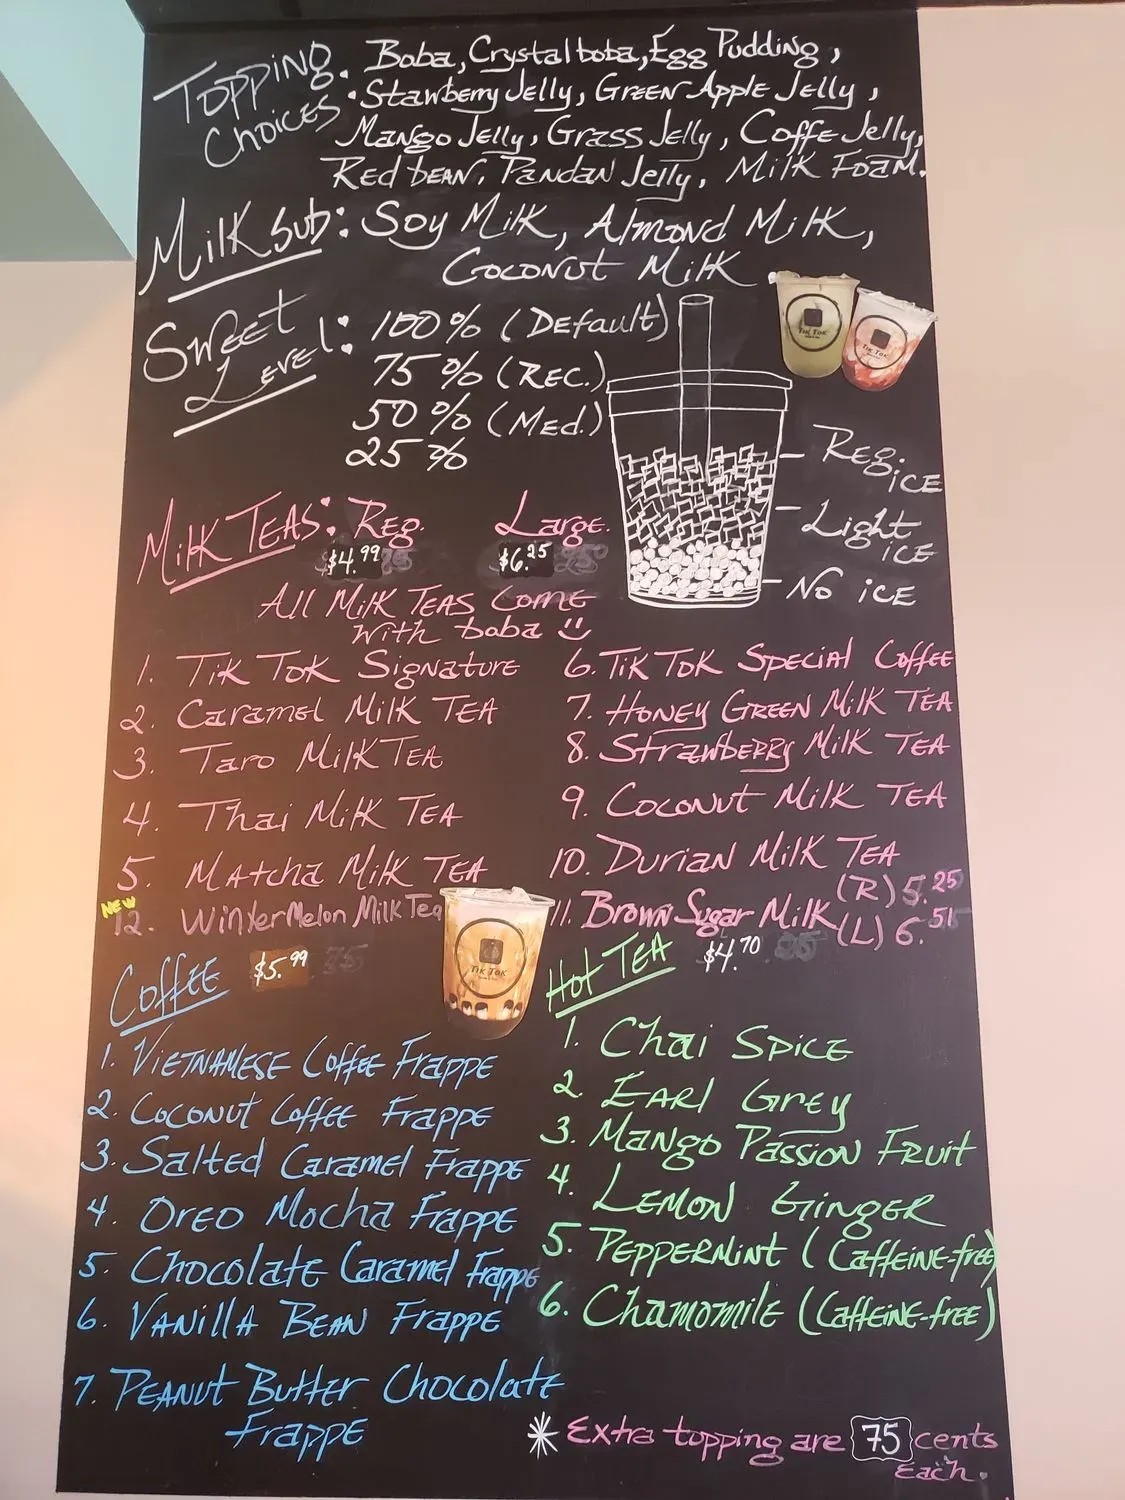 Topping Choices: Boba, Crystal boba, Egg Pudding,
Stawberry Jelly, Green Apple Jelly,
Mango Jelly, Grass Jelly, Coffe Jelly,
Red bean, Pandan Jelly, Milk Foam.
Milk Sub: Soy Milk, Almond Milk,
Coconut Milk
Sweet Level: 100% (Default)
75% (Rec.)
50% (Med.)
25%
TIK TOK
TIK TOK
Reg. ice
Light ice
No ice
Milk Teas: Reg. Large
$4.99 $6.25
All Milk Teas Come
with boba
1. Tik Tok Signature
2. Caramel Milk Tea
3. Taro Milk Tea
4. Thai Milk Tea
5. Matcha Milk Tea
NEW
12. WinterMelon Milk Tea
6. Tik Tok Special Coffee
7. Honey Green Milk Tea
8. Strawberry Milk Tea
9. Coconut Milk Tea
10. Durian Milk Tea
11. Brown Sugar Milk (R) 5.25
(L) 6.51
TIK TOK
Coffee $5.99
1. Vietnamese Coffee Frappe
2. Coconut Coffee Frappe
3. Salted Caramel Frappe
4. Oreo Mocha Frappe
5. Chocolate Caramel Frappe
6. Vanilla Bean Frappe
7. Peanut Butter Chocolate
Frappe
Hot Tea $4.70
1. Chai Spice
2. Earl Grey
3. Mango Passion Fruit
4. Lemon Ginger
5. Peppermint (Caffeine-free)
6. Chamomile (Caffeine-free)
* Extra topping are 75 cents
Each.